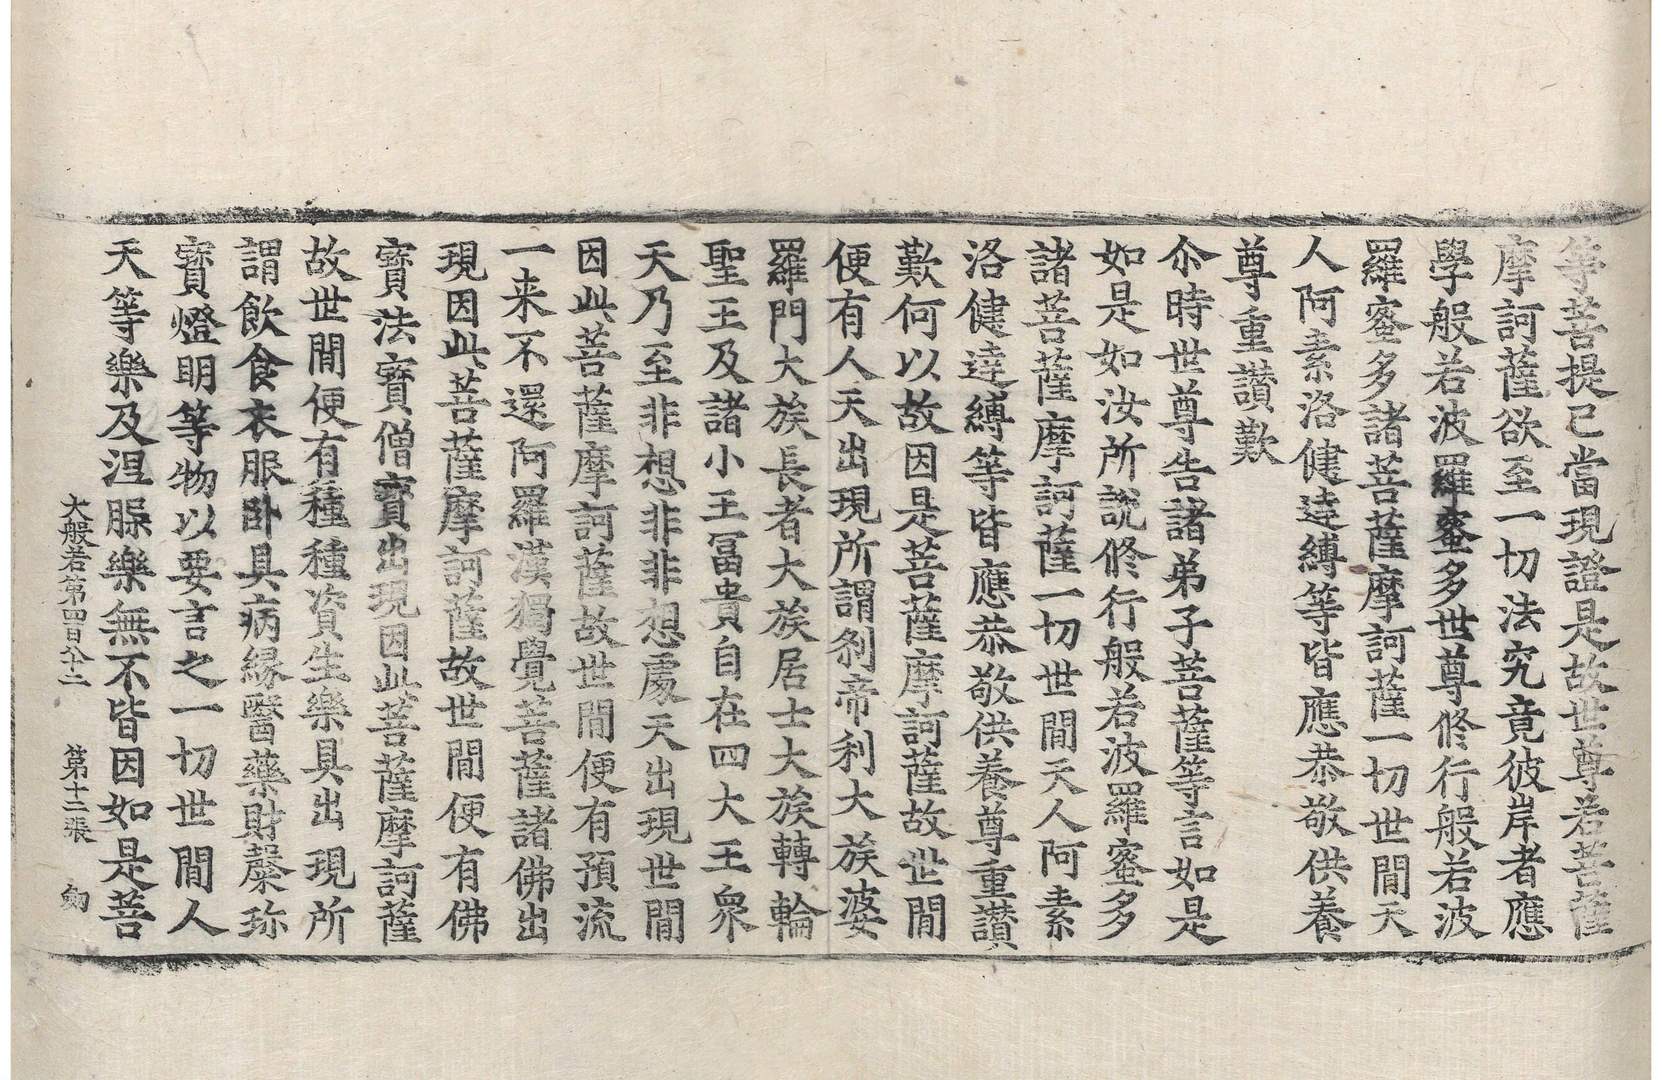 等菩提已當現證是故世尊若菩薩
摩訶薩欲至一切法究竟彼岸者應
學般若波羅蜜多世尊修行般若波
羅蜜多諸菩薩摩訶薩一切世間天
人阿素洛健達縛等皆應恭敬供養
尊重讚歎
尒時世尊告諸弟子菩薩等言如是
如是如汝所說修行般若波羅蜜多
諸菩薩摩訶薩一切世間天人阿素
洛健達縛等皆應恭敬供養尊重讚
歎何以故因是菩薩摩訶薩故世間
便有人天出現所謂剎帝利大族婆
羅門大族長者大族居士大族轉輪
聖王及諸小王冨貴自在四大王眾
天乃至非想非非想處天出現世間
因此菩薩摩訶薩故世間便有預流
一来不還阿羅漢獨覺菩薩諸佛出
現因此菩薩摩訶薩故世間便有佛
寳法寳僧寳出現因此菩薩摩訶薩
故世間便有種種資生樂具出現所
謂飲食衣服卧具病緣醫藥財糓珎
寳燈明等物以要言之一切世間人
天等樂及涅脲樂無不皆因如是菩
大般若第四百八十二　第十二張　劒